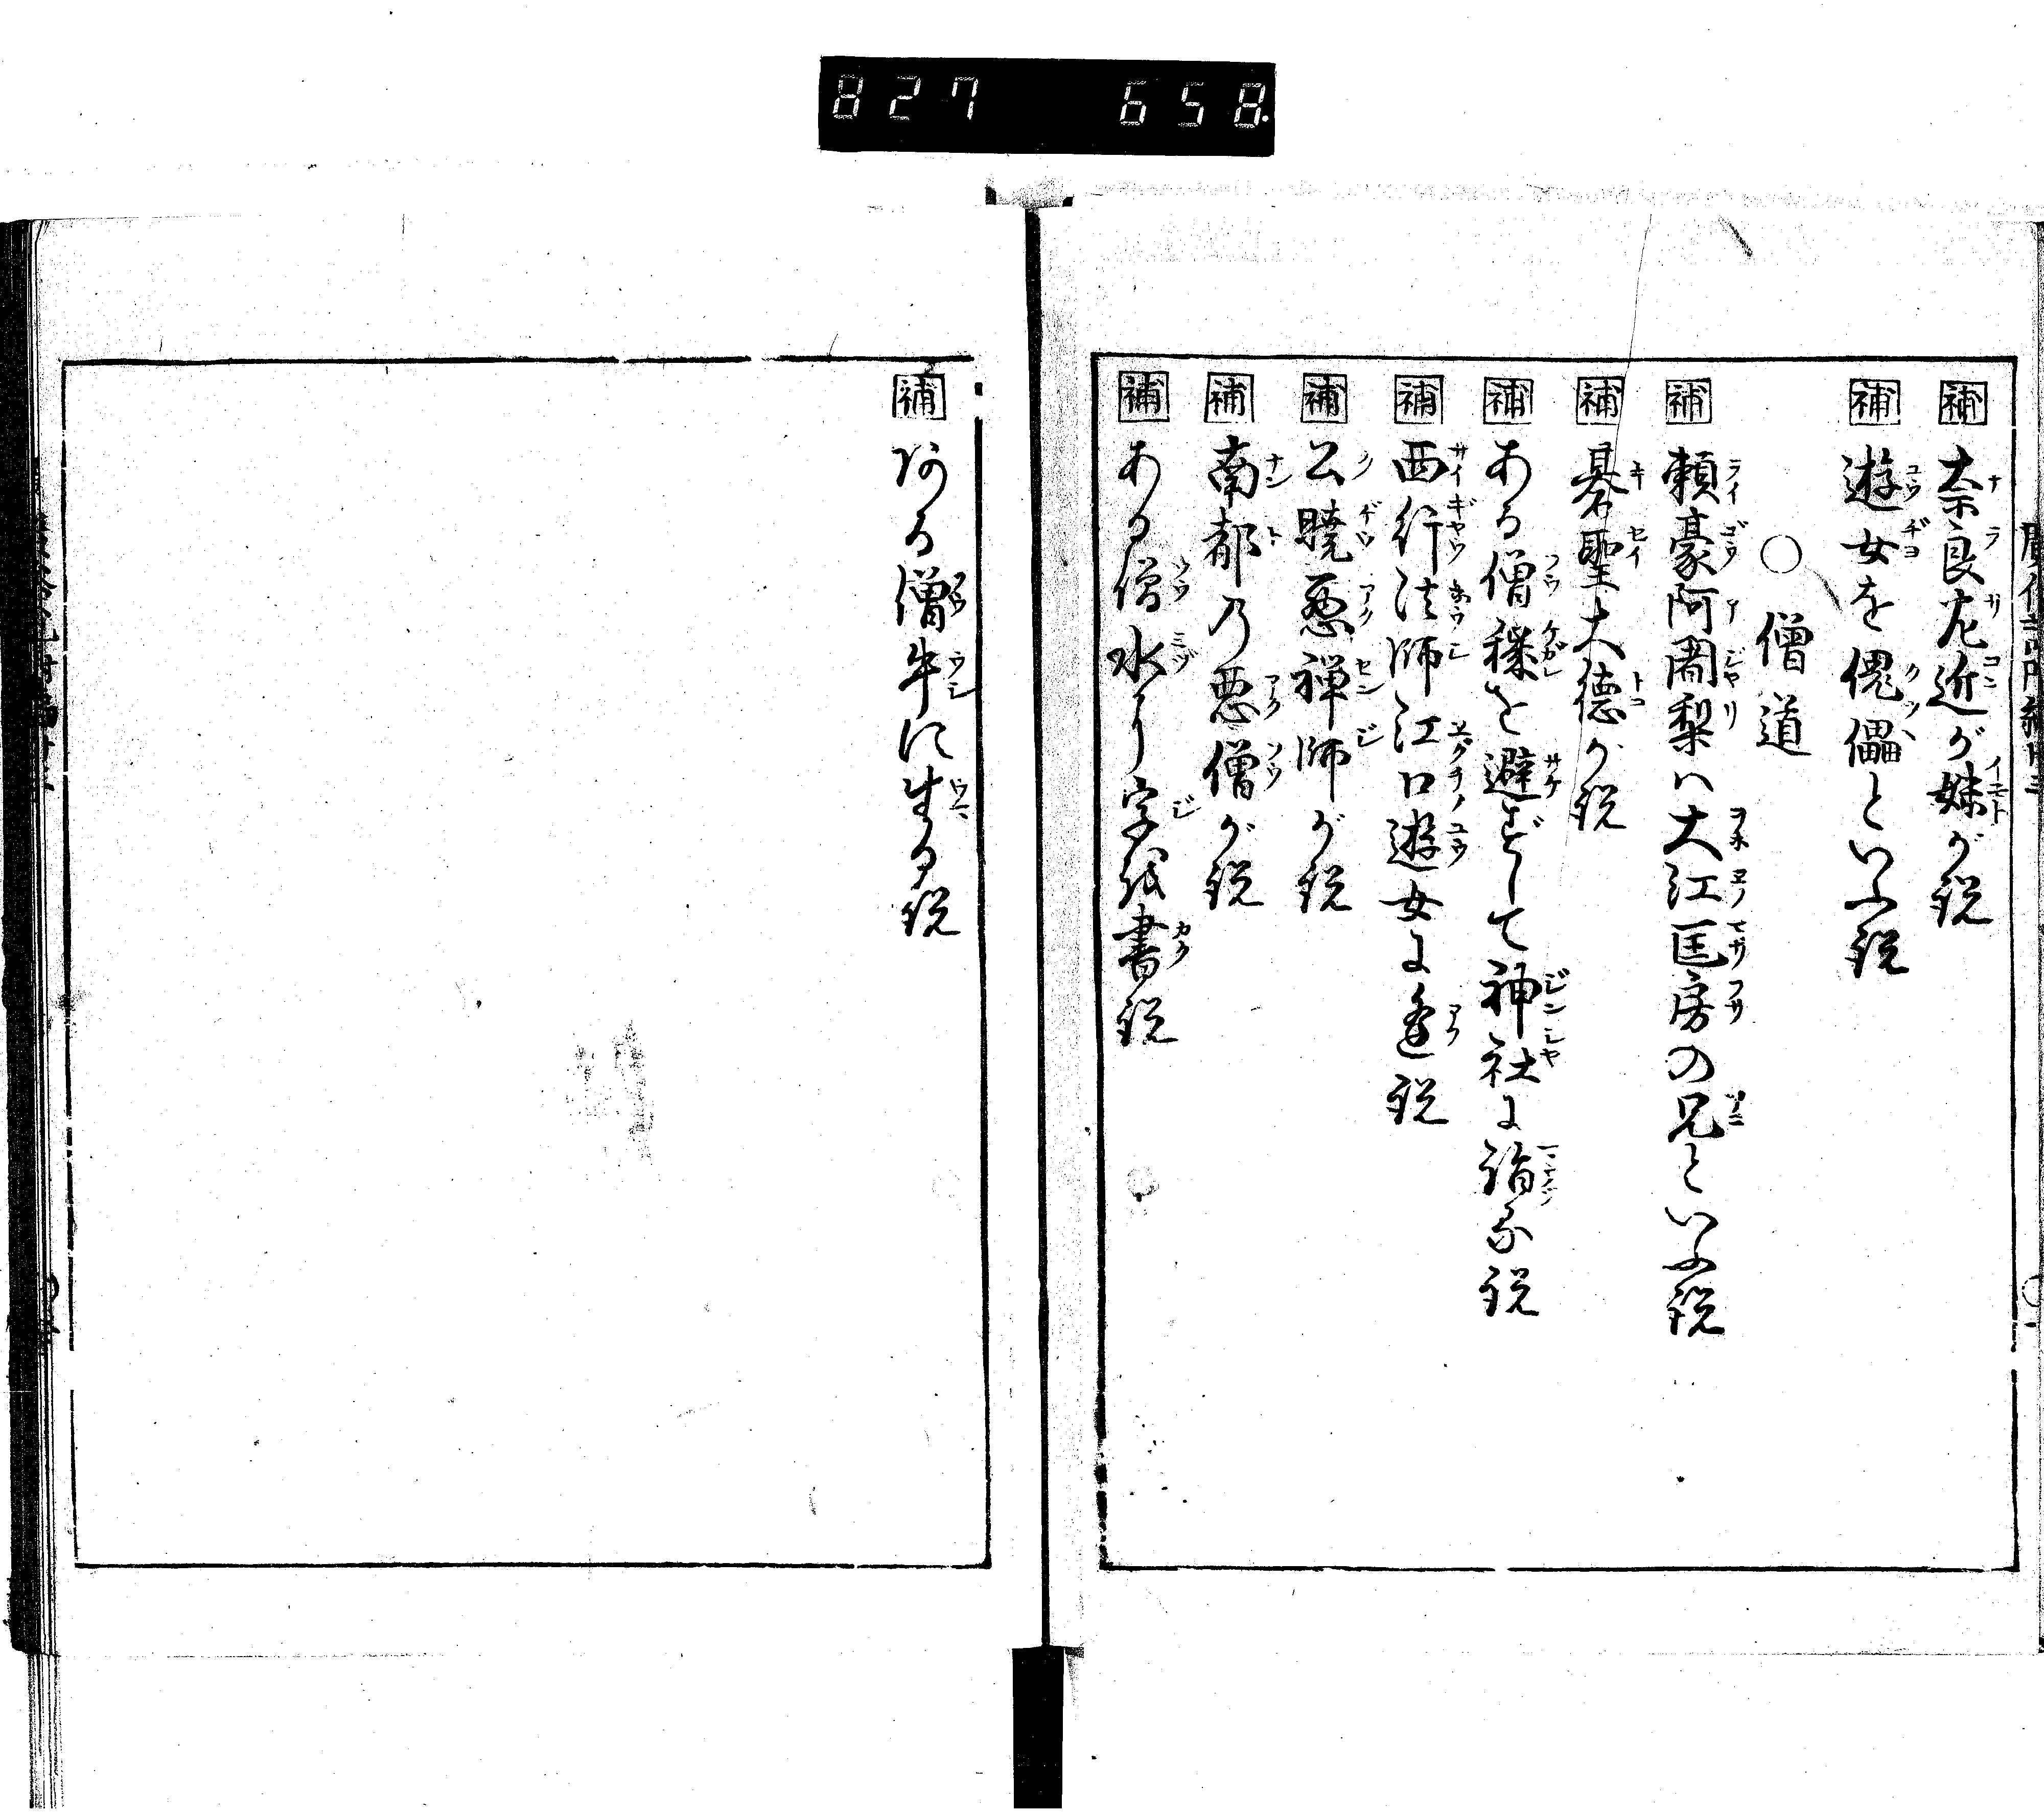 827 658
補 奈良左近が妹が説
補 遊女を傀儡といふ説
○ 僧道
補 頼豪阿闍梨ハ大江匡房の兄といふ説
補 碁聖大徳が説
補 ある僧穢を避ずして神社に詣る説
補 西行法師江口遊女に逢説
補 公暁悪禅師が説
補 南都の悪僧が説
補 ある僧水より字を書説
補 ある僧牛に生る説